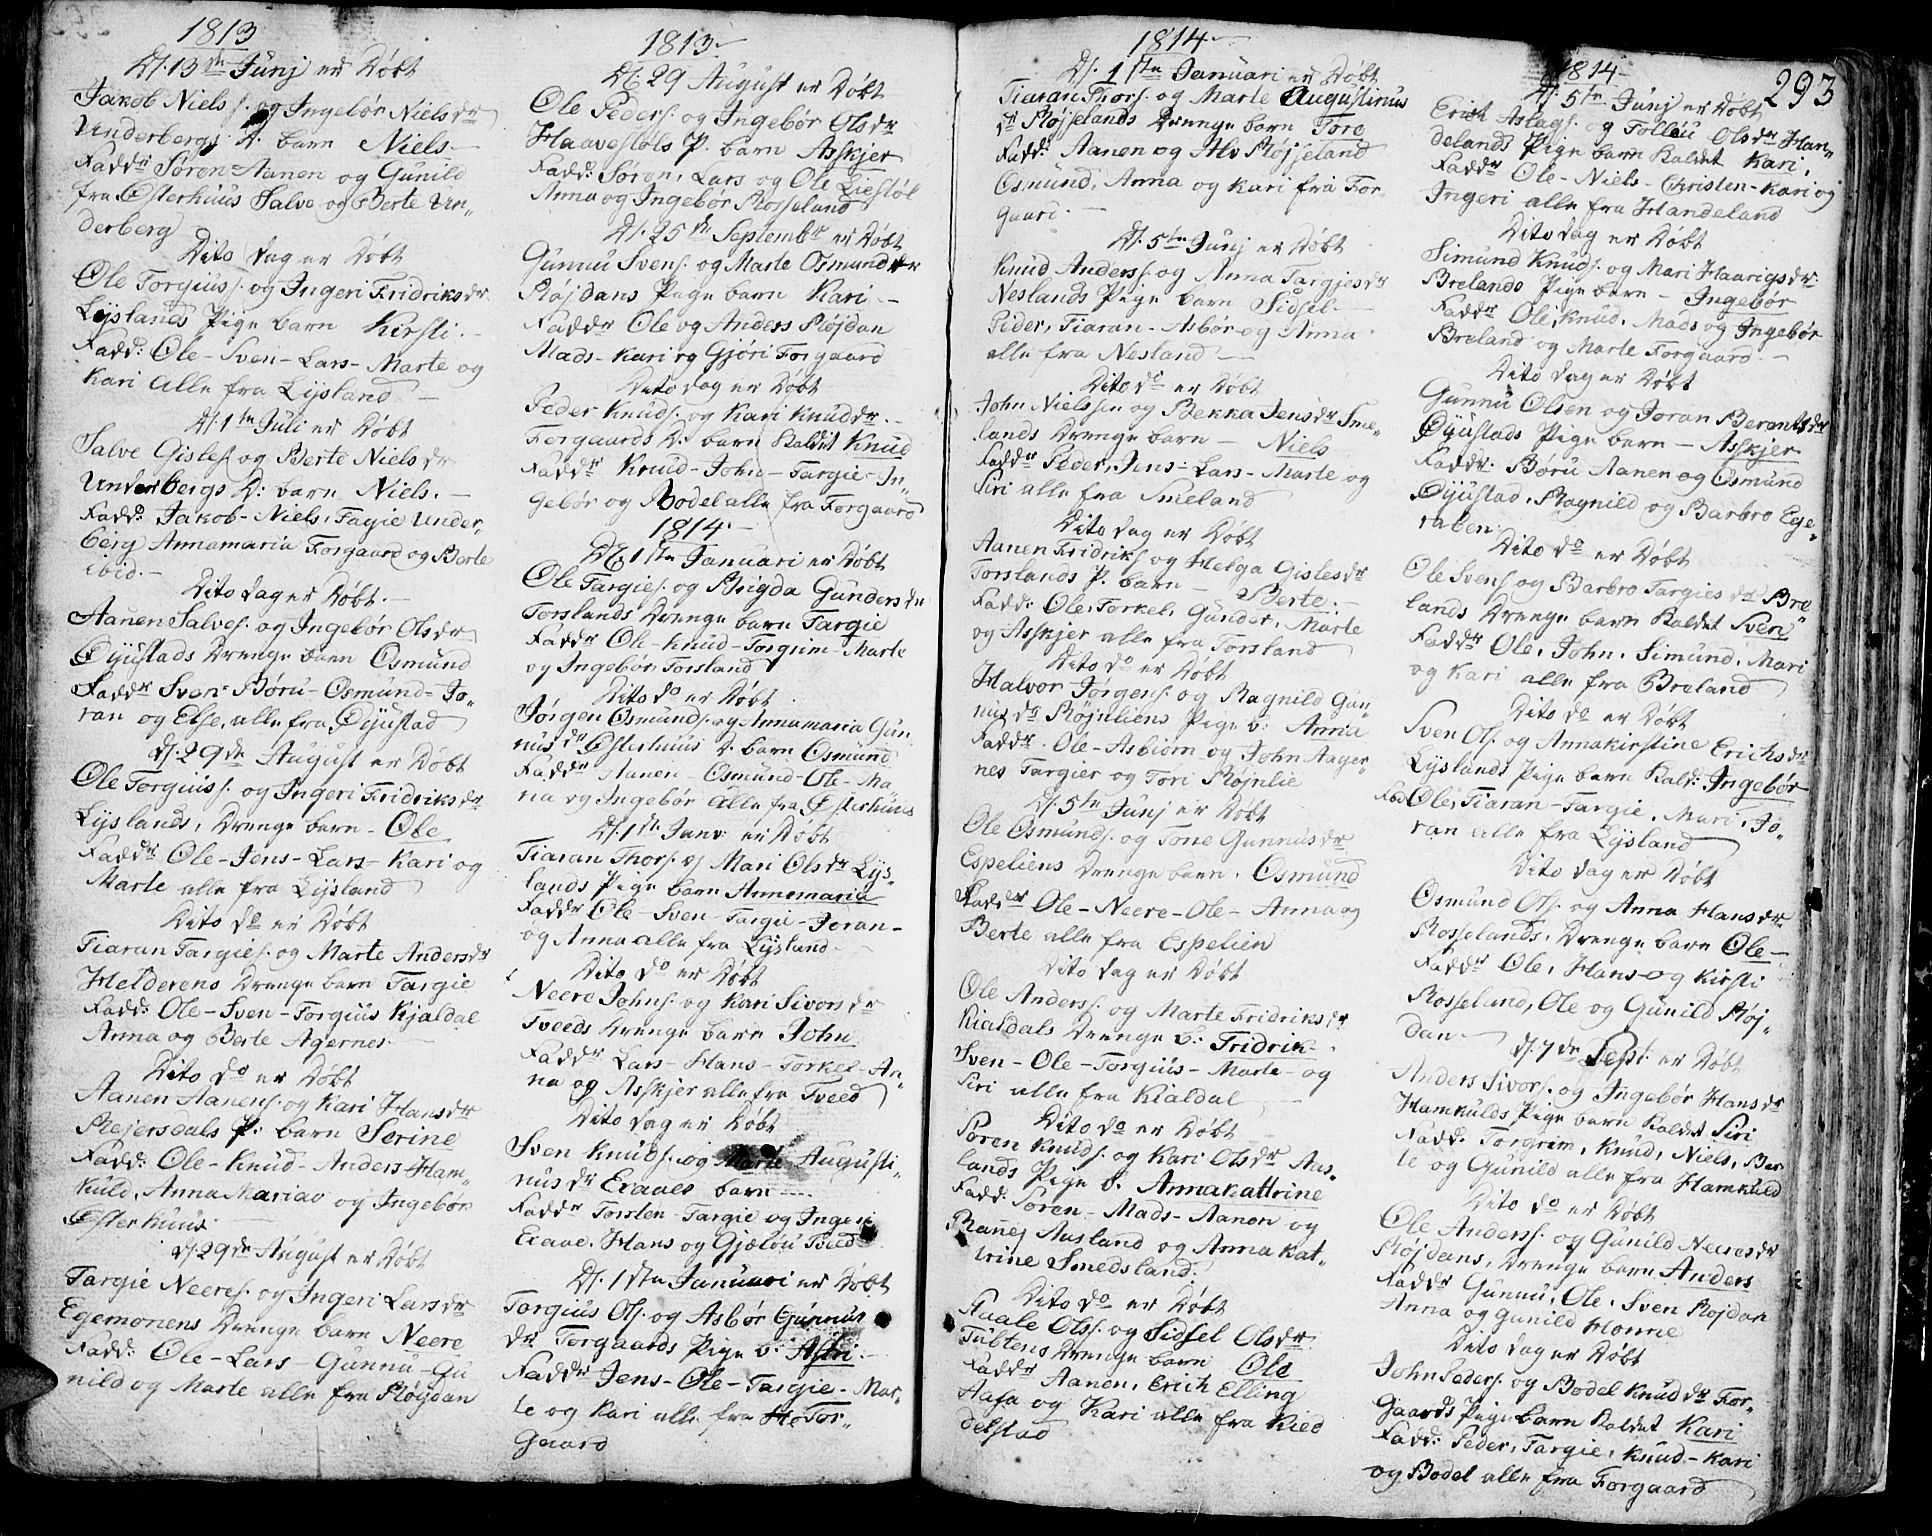 1813
Df. 13de Junj er Døbt
Jakob Niels s. og Ingebør Nielsdr
Underbergs D. barn Niels
Faddr Søren Aanen og Gunild
fra Østerhuus Salve og Berte Un-
derberg
Dito dag er Døbt
Ole Torgius s. og Ingeri Fridriksdr
Lijslands Pige barn Kirsti.
Fadd: Ole - Sven - Lars - Marte og
Kari alle fra Lijsland
Df. 1te Juli er Døbt
Salve Gisles s. og Berte Nielsdr
Underbergs D: barn Niels.
Fadd: Jakob - Niels, Tagie Under,
berg Annamaria Forgaard og Berte
ibid.
Dito dag er Døbt.
Aanen Salves. og Ingebør Olsdr
Øyustads Drenge barn Osmund
Faddr Sven - Børu - Osmund - Jo-
ran og Else, alle fra Øyustad
df. 29de August er Døbt
Ole Torgius s. og Ingeri Fridriksdr
Lijslands, Drenge barn - Ole
Faddr Ole - Jens - Lars - Kari og
Marte alle fra Lijsland
Dito do er Døbt
Tiaran Targies. og Marte Andersdr
Helderens Drenge barn Targie
Fadd: Ole - Sven - Torgius Kjaldal
Anna og Berte Agernes
Dito do er Døbt
Aanen Aanens. og Kari Hansdr
Reiersdals P: barn Serine
Fadd: Ole - Knud - Anders Ham-
kuld, Anna Maria og Ingebør
Østerhuus
df. 29de August er Døbt
Targie Neeres. og Ingeri Larsdr
Egemonens Drenge barn Neere
Fadd: Ole - Lars - Gunnu - Gu
nild og Marte alle fra Røyrdan
1813
Df. 29 August er Døbt
Ole Peders. og Ingebør Olsdr
Haavestøls P. barn Asskjer
Fadd: Søren, Lars og Ole Liestøl
Anna og Ingebør Rosseland
Df. 25de Septembr er Døbt
Gunnu Svens. og Marte Osmundsdr
Røjdans Pige barn Kari -
Faddr Ole og Anders Røjdan
Mads - Kari og Gjøri Forgaard
Dito dag er Døbt
Peder Knuds. og Kari Knudsdr.
Forgaards D: barn Kaldet Knud
Faddr Knud - John - Targie - In,
gebør og Bodel alle fra Forgaard
1814
Df. 1ste Januari er Døbt
Ole Targies. og Brigda Gundersdr
Torslands Drenge barn Targie
Faddr Ole - Knud - Torgrim - Marte
og Ingebør Torsland
Dito do er Døbt
Jørgen Osmunds. og Annamaria Gun
nusdr Østerhuus D. barn Osmund
Faddr Aanen - Osmund - Ole - Ma-
ria og Ingebør alle fra Østerhuus
Df. 1ste Janv: er Døbt
Tiaran Thors. og Mari Olsdr Lijs-
lands Pige barn Annemaria
Faddr Ole - Sven - Targie - Joran -
og Anna alle fra Lijsland
Dito do er Døbt
Neere Johns. og Kari Sivorsdr
Tveeds Drenge barn John
Faddr Lars - Hans - Torkel - An,
na og Asskjer alle fra Tveed
Dito dag er Døbt
Sven Knuds. og Marte Augusti-
nusdr Eraaes barn
Faddr Torsten - Targie og Ingeri
Eraae. Hans og Gjølou Tveed
Df. 1ste Januari er Døbt
Torgius Ols. og Asbør Gunnus
dr Forgaards Pige b: Astri.
Faddr Jens - Ole - Targie - Mar-
te og Kari alle fra For-
gaard
1814
Df. 1ste Januari er Døbt
Tiaran Thors. og Marte Augustinus
dr Røjselands Drenge barn Tore
Fadd: Aanen og Alv Røjseland
Osmund, Anna og Kari fra For
gaari.
Df. 5te Junj er Døbt
Knud Anders s. og Anna Targjesdr
Neslands Pige barn Sidsel
Peder, Tiaran - Asbør og Anna
alle fra Nesland
Dito do er Døbt
John Nielssen og Bekka Jensdr Sme-
lands Drenge barn - Niels
Faddr Peder, Jens - Lars - Marte og
Siri alle fra Smeland
Dito dag er Døbt
Aanen Fridriks s og Helga Gislesdr
Torslands P. barn - Berte.
Fadd: Ole, Torkel, Gunder, Marte
og Asskjer alle fra Torsland
Dito do er Døbt
Halvor Jørgens. og Ragnild Gun-
nusdr Røjnliens Pige b: Anna
Faddr. Ole - Asbiørn og John Aager-
nes Targier og Tori Røjnlie
Df. 5te Junj er Døbt
Ole Osmunds. og Tone Gunnusdr
Espeliens Drenge barn. Osmund
Faddr Ole - Neere - Ole - Anna og
Berte alle fra Espelien
Dito dag er Døbt
Ole Anders s. og Marte Fridriksdr
Kialdals Drenge b: Fridrik
Sven - Ole - Torgius - Marte - og
Siri alle fra Kialdal
Dito do er Døbt
Søren Knuds. og Kari Olsdr Aus-
lands Pige b. Annakattrine
Fadd: Søren - Mads - Aanen og
Rannej Ausland og Anna kat-
trine Smedsland.
Dito do er Døbt
Staale Olss. og Sidsel Olsdr
Tubtens Drenge barn Ole
Faddr Aanen, Erich Elling
Aasa og Kari alle fra Kied
delstad
1814
293
Df. 5te Junj er Døbt
Erick Aslags. og Tollou Olsdr Han-
delands Pige barn Kaldet Kari.
Faddr Ole - Niels - Christen - Kari og
Ingeri alle fra Handeland
Dito dag er Døbt
Simund Knuds. og Mari Haarigsdr:
Brelands Pige barn - Ingebør
Faddr Ole, Knud, Mads og Ingebør
Breland og Marte Forgaard
Dito dag er Døbt
Gunnu Olsen og Joran Berentsdr
Øyustads Pige barn - Asskjer
Faddr. Børu Aanen og Osmund
Øyustad, Ragnild og Barbro Ege-
raaen
Dito do er Døbt
Ole Svens. og Barbro Targiesdr Bre
lands Drenge barn Kaldet Sven
Faddr Ole, John, Simund, Mari
og Kari alle fra Breland
Dito do er Døbt
Sven Ols. og Annakirstine Erichsdr
Lijslands Pige barn Kald: Ingebør
Fad Ole, Tiaran - Targie, Mari, Jo-
ran alle fra Lijsland
Dito dag er Døbt
Osmund Ols. og Anna Hansdr
Rosselands, Drenge barn Ole -
Faddr Ole, Hans og Kirsti
Rosseland, Ole og Gunild Røj-
dan
df. 7de Sept. er Døbt
Anders Sivors. og Ingebør Hansdr
Hamkulds Pige barn Kaldet Siri
Fadd: Torgrim, Knud, Niels, Ber
te og Gunild alle fra Hamkuld
Dito do er Døbt
Ole Anders s. og Gunild Neeresdr
Røjdans, Drenge barn Anders
Faddr Gunnu, Ole, Sven Røjdan
Anna og Gunild Honne
Dito dag er Døbt
John Peders. og Bodel Knudsdr For-
gaards Pige barn Kaldet Kari
Fadd: Peder, Targie, Knud - Kari
og Bodel alle fra Forgaard